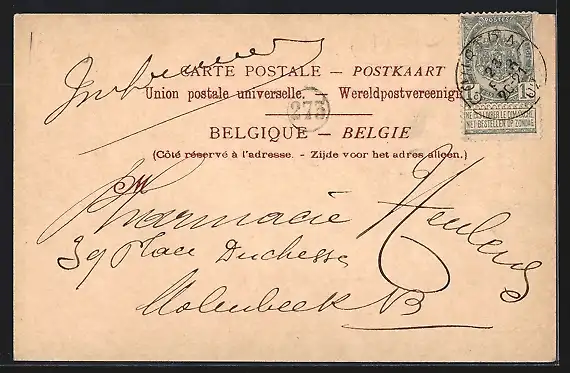 CARTE POSTALE — POSTKAART
Union postale universelle. — Wereldpostvereenig
275
BELGIQUE — BELGIE
(Côté réservé à l'adresse. - Zijde voor het adres alleen.)
POSTES
NE PAS LIVRER LE DIMANCHE
NIET BESTELLEN OP ZONDAG
Pharmacie
39 Place Duchesse
Molenbeek